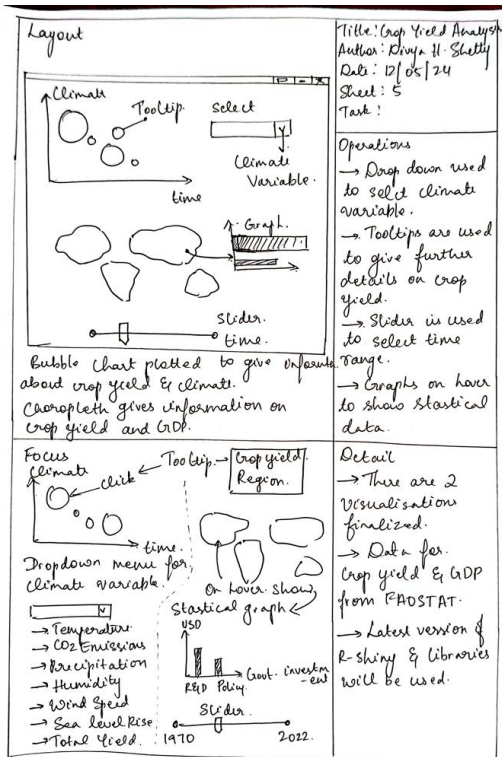 Layout
Title: Crop Yield Analysis
Author: Divya H. Shetty
Date: 12/05/24
Sheet: 5
Task:
Climate
Tooltip
Select
Climate
Variable.
time
Graph.
Slider.
time.
Bubble Chart plotted to give informa
about crop yield & climate.
Choropleth gives information on
crop yield and GDP.
Operations
→ Drop down used
to selct climate
variable.
→ Tooltips are used
to give further
details on crop
yield.
→ Slider is used
to select time
range.
→ Graphs on hover
to show Stastical
data.
Focus
Climate
click
Tooltip → Crop yield
Region.
time.
Dropdown menu for
Climate variable.
→ Temperature
→ CO2 Emissions
→ Precipitation
→ Humidity
→ Wind Speed
→ Sea level Rise
→ Total Yield.
On hover show
Stastical graph
USD
R&D Policy
Govt. investm
-ent
Slider
1970 2022.
Detail
→ There are 2
visualisations
finalized.
→ Data for
Crop yield & GDP
from FAOSTAT.
→ Latest version of
R-shiny & libraries
will be used.